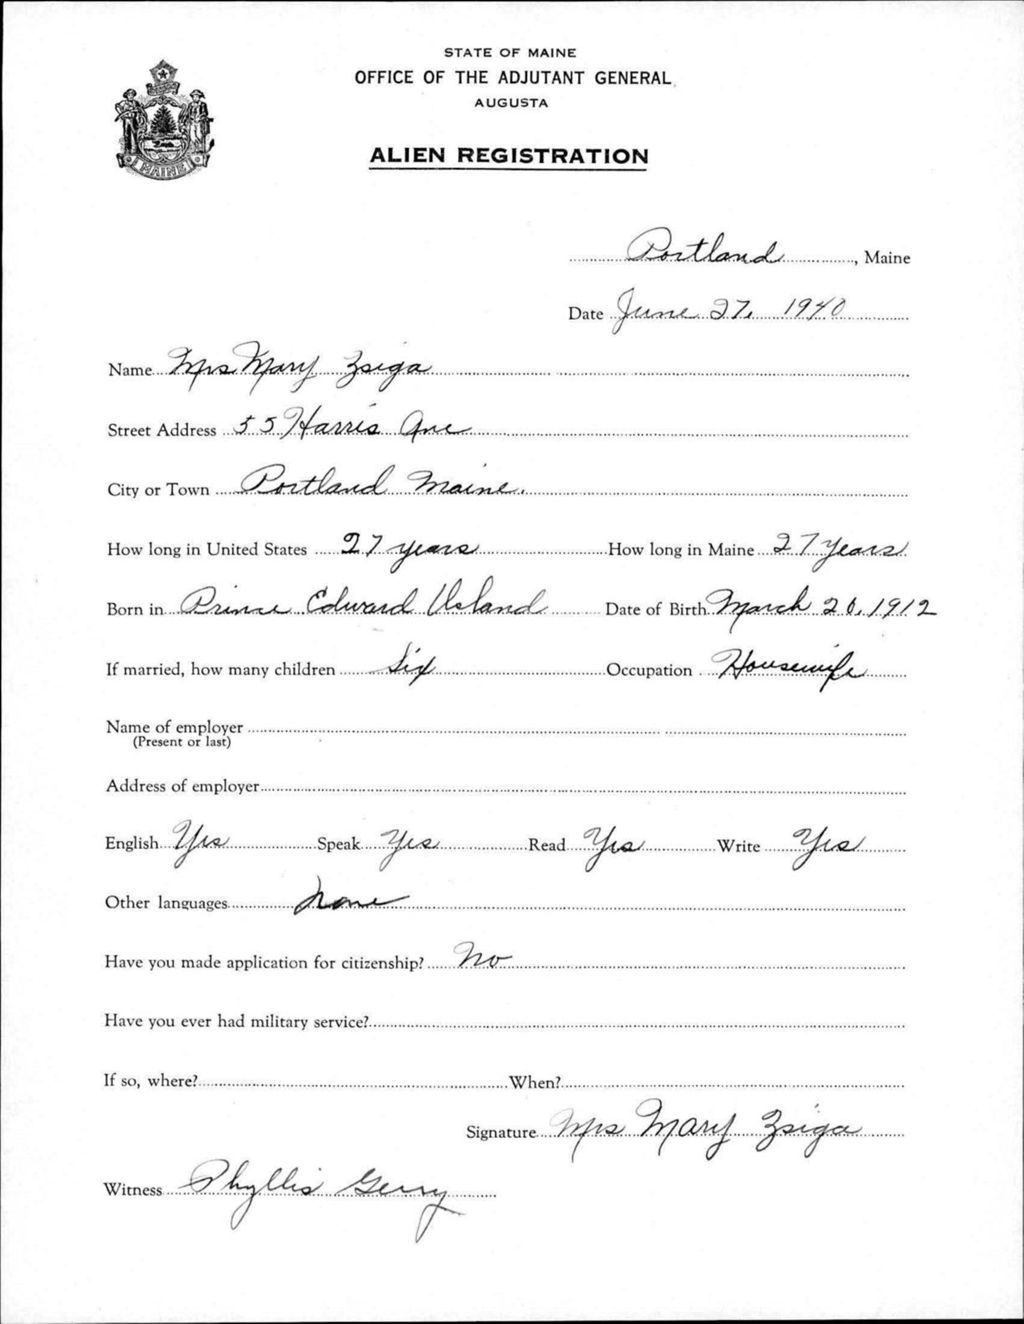 STATE OF MAINE
OFFICE OF THE ADJUTANT GENERAL
AUGUSTA
ALIEN REGISTRATION
MAINE
Portland, Maine
Date June 27, 1940
Name Mrs Mary Zsiga
Street Address 55 Harris Ave
City or Town Portland Maine.
How long in United States 27 years How long in Maine 27 Years
Born in Prince Edward Island Date of Birth March 20, 1912
If married, how many children Six Occupation Housewife
Name of employer
(Present or last)
Address of employer
English Yes Speak Yes Read Yes Write Yes
Other languages None
Have you made application for citizenship? No
Have you ever had military service?
If so, where? When?
Signature Mrs Mary Zsiga
Witness Phyllis Gerry